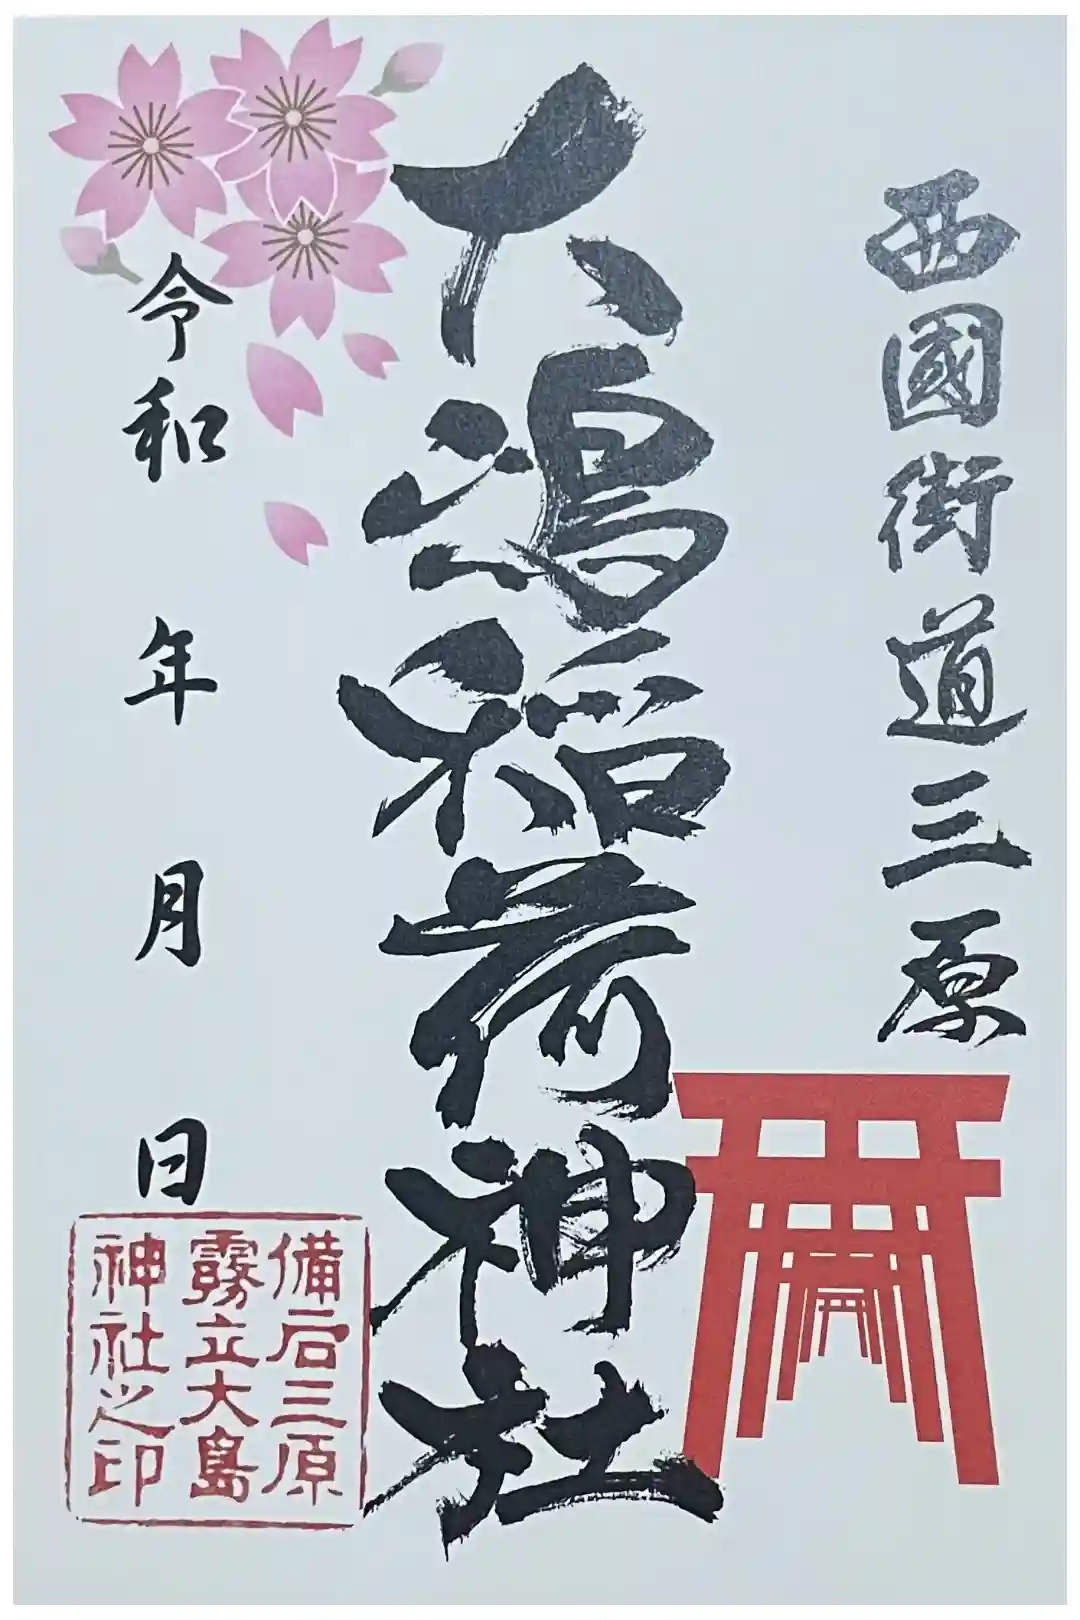 西國街道三原
大嶋稲荷神社
令和 年 月 日
備后三原
霧立大島
神社之印